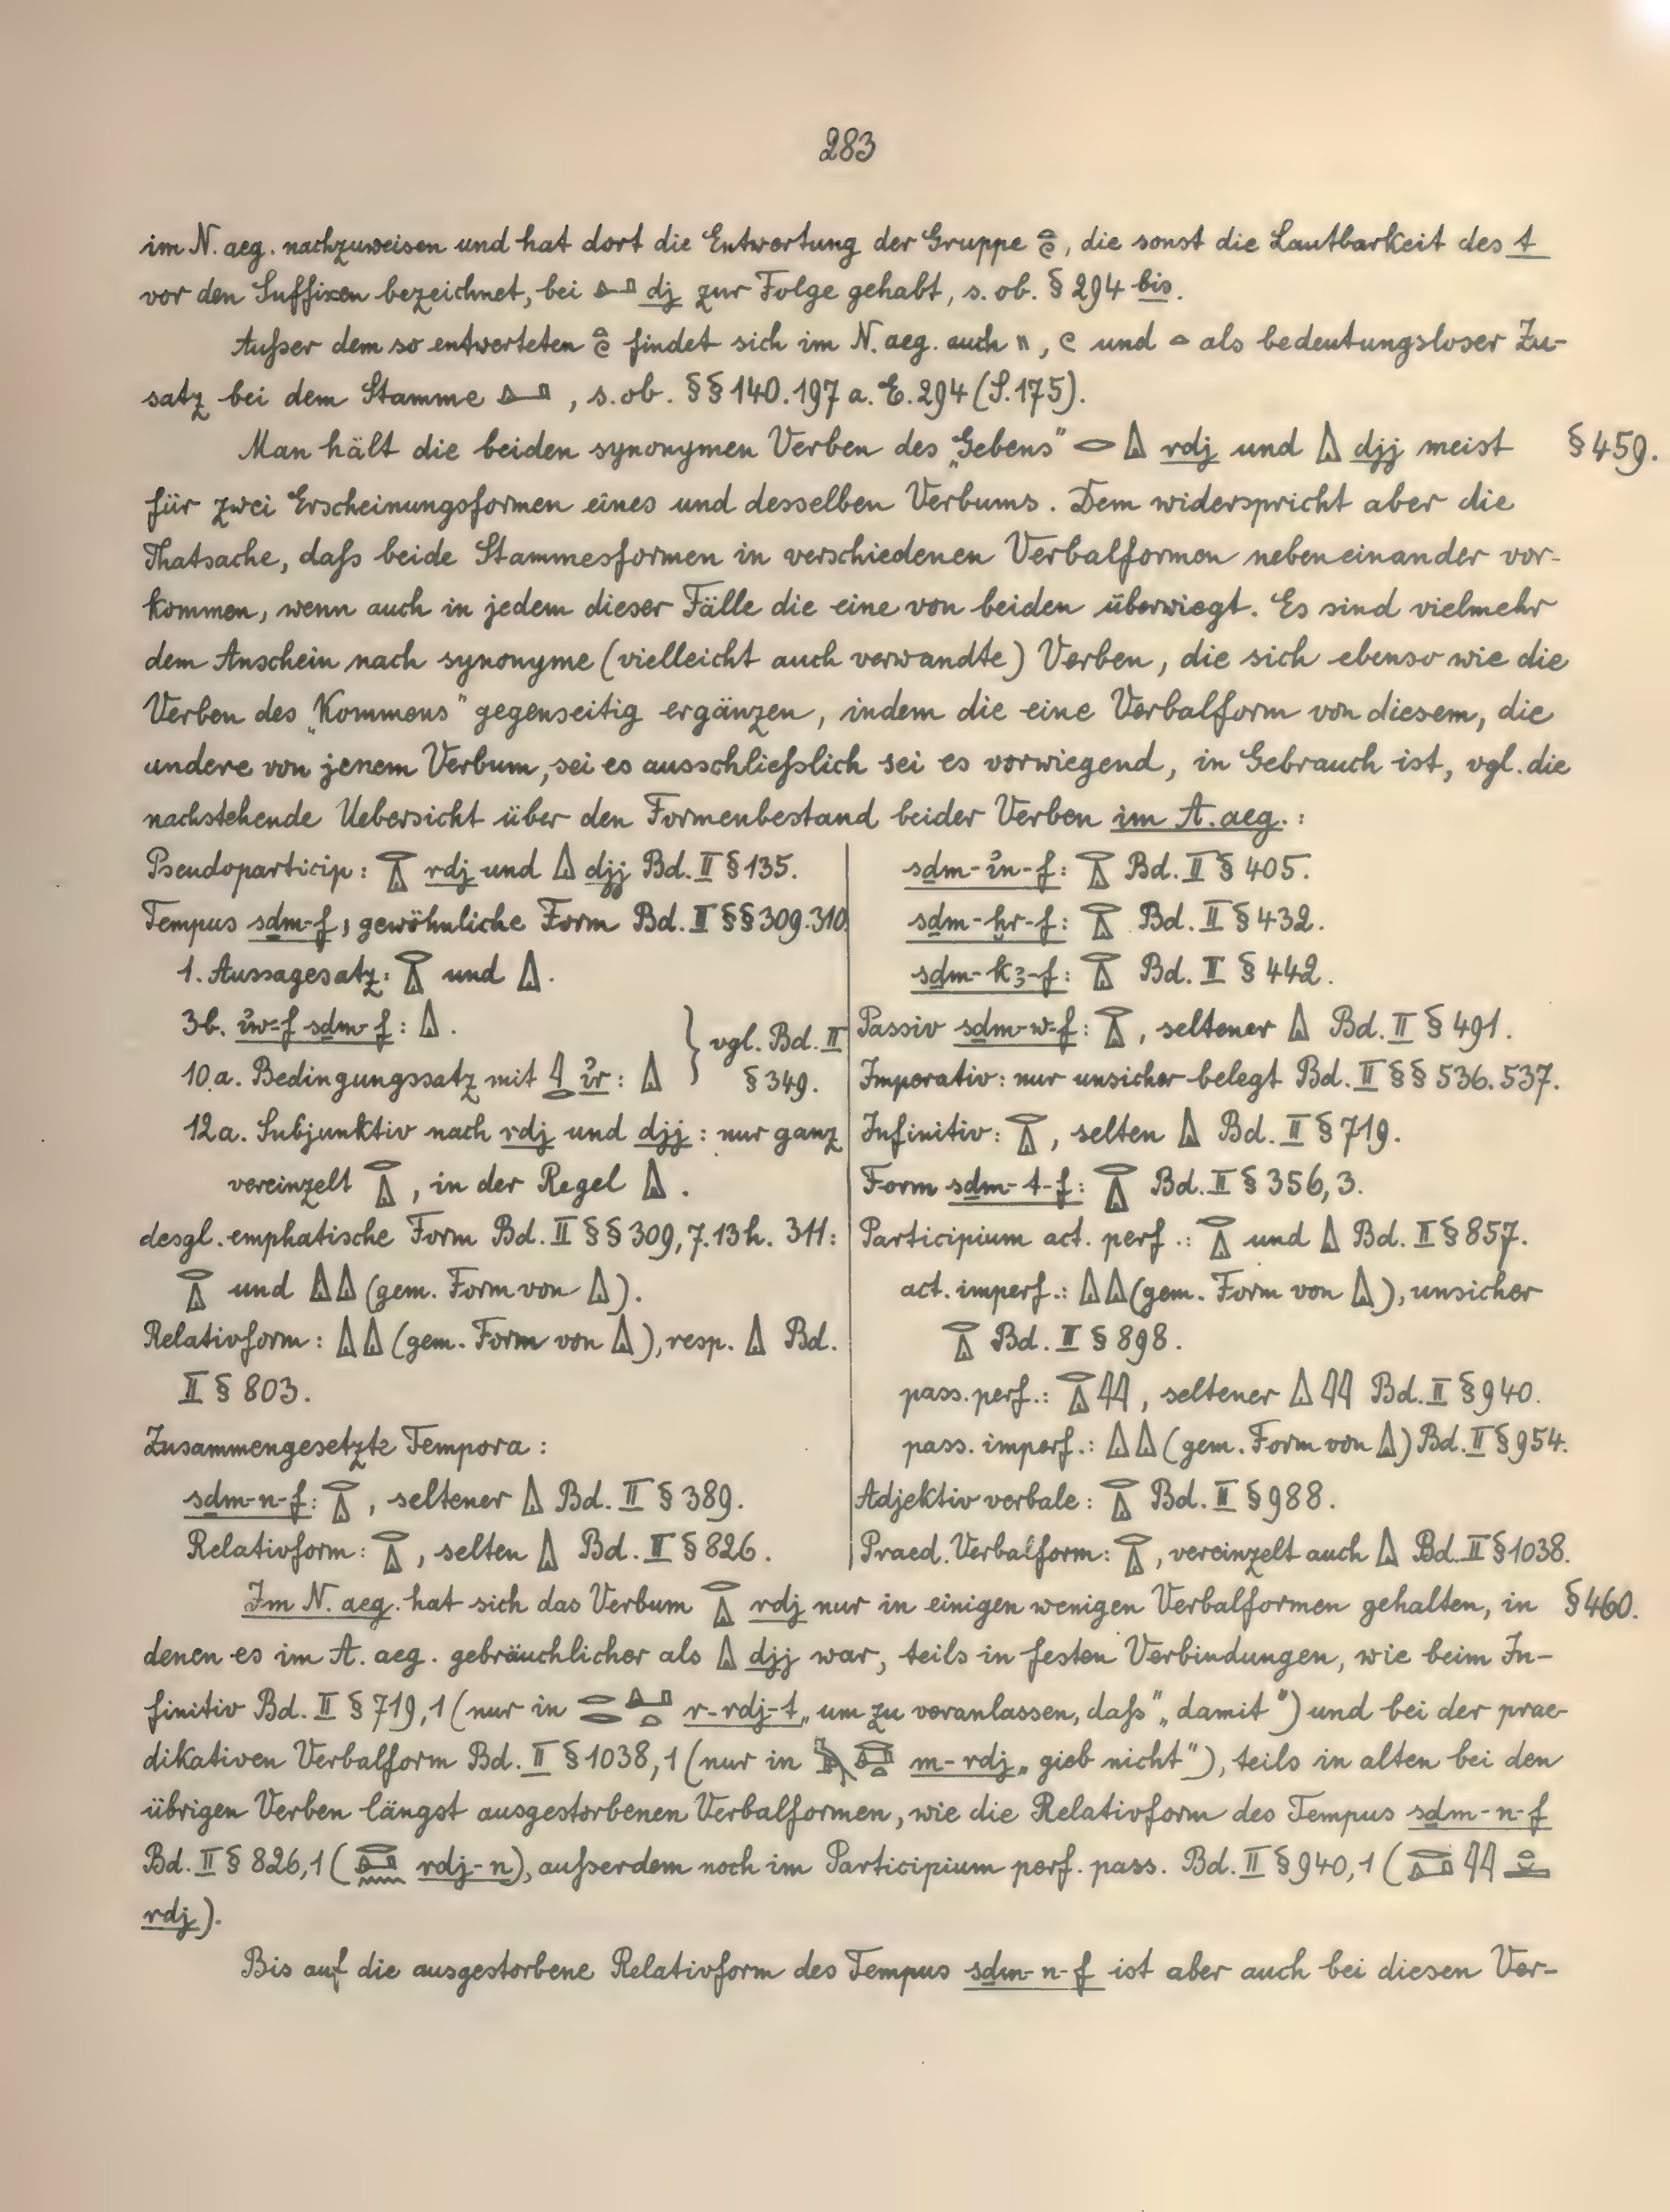 283
im N. aeg. nachzuweisen und hat dort die Entwertung der Gruppe 𓏏𓏲, die sonst die Lautbarkeit des t
vor den Suffixen bezeichnet, bei 𓂞 dj zur Folge gehabt, s. ob. § 294 bis.
Außer dem so entwerteten 𓏏𓏲 findet sich im N. aeg. auch 𓏭, 𓏲 und 𓏏 als bedeutungsloser Zu-
satz bei dem Stamme 𓂞, s. ob. §§ 140. 197 a. E. 294 (S. 175).
Man hält die beiden synonymen Verben des „Gebens" 𓂋𓏙 rdj und 𓏙 djj meist § 459.
für zwei Erscheinungsformen eines und desselben Verbums. Dem widerspricht aber die
Thatsache, daß beide Stammesformen in verschiedenen Verbalformen nebeneinander vor-
kommen, wenn auch in jedem dieser Fälle die eine von beiden überwiegt. Es sind vielmehr
dem Anschein nach synonyme (vielleicht auch verwandte) Verben, die sich ebenso wie die
Verben des „Kommens" gegenseitig ergänzen, indem die eine Verbalform von diesem, die
andere von jenem Verbum, sei es ausschließlich sei es vorwiegend, in Gebrauch ist, vgl. die
nachstehende Uebersicht über den Formenbestand beider Verben im A. aeg. :
Pseudoparticip: 𓂋𓏙 rdj und 𓏙 djj Bd. II § 135.
Tempus sḏm-f, gewöhnliche Form Bd. II §§ 309. 310.
1. Aussagesatz: 𓂋𓏙 und 𓏙.
3b. ỉw-f sḏm-f: 𓏙.
10.a. Bedingungssatz mit 𓇋𓂋 ỉr: 𓏙
} vgl. Bd. II
§ 349.
12a. Subjunktiv nach rdj und djj: nur ganz
vereinzelt 𓂋𓏙, in der Regel 𓏙.
desgl. emphatische Form Bd. II §§ 309, 7. 13h. 311:
𓂋𓏙 und 𓏙𓏙 (gem. Form von 𓏙).
Relativform: 𓏙𓏙 (gem. Form von 𓏙), resp. 𓏙 Bd.
II § 803.
Zusammengesetzte Tempora :
sḏm-n-f: 𓂋𓏙, seltener 𓏙 Bd. II § 389.
Relativform: 𓂋𓏙, selten 𓏙 Bd. II § 826.
sḏm-ỉn-f: 𓂋𓏙 Bd. II § 405.
sḏm-ḫr-f: 𓂋𓏙 Bd. II § 432.
sḏm-kꜣ-f: 𓂋𓏙 Bd. II § 442.
Passiv sḏm-w-f: 𓂋𓏙, seltener 𓏙 Bd. II § 491.
Imperativ: nur unsicher belegt Bd. II §§ 536. 537.
Infinitiv: 𓂋𓏙, selten 𓏙 Bd. II § 719.
Form sḏm-t-f: 𓂋𓏙 Bd. II § 356, 3.
Participium act. perf.: 𓂋𓏙 und 𓏙 Bd. II § 857.
act. imperf.: 𓏙𓏙 (gem. Form von 𓏙), unsicher
𓂋𓏙 Bd. II § 898.
pass. perf.: 𓂋𓏙𓇋𓇋, seltener 𓏙𓇋𓇋 Bd. II § 940.
pass. imperf.: 𓏙𓏙 (gem. Form von 𓏙) Bd. II § 954.
Adjektiv verbale: 𓂋𓏙 Bd. II § 988.
Praed. Verbalform: 𓂋𓏙, vereinzelt auch 𓏙 Bd. II § 1038.
Im N. aeg. hat sich das Verbum 𓂋𓏙 rdj nur in einigen wenigen Verbalformen gehalten, in § 460.
denen es im A. aeg. gebräuchlicher als 𓏙 djj war, teils in festen Verbindungen, wie beim In-
finitiv Bd. II § 719, 1 (nur in 𓂋𓂋𓂞𓏏 r-rdj-t „um zu veranlassen, daß", „damit") und bei der prae-
dikativen Verbalform Bd. II § 1038, 1 (nur in m-rdj „gieb nicht"), teils in alten bei den
übrigen Verben längst ausgestorbenen Verbalformen, wie die Relativform des Tempus sḏm-n-f
Bd. II § 826, 1 (𓂋𓂞𓈖 rdj-n), außerdem noch im Participium perf. pass. Bd. II § 940, 1 (𓂋𓂞𓇋𓇋
rdj).
Bis auf die ausgestorbene Relativform des Tempus sḏm-n-f ist aber auch bei diesen Ver-